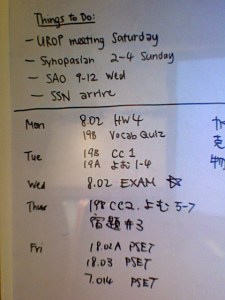 Things to Do:
- UROP meeting Saturday
- Synopasian 2-4 Sunday
- SAO 9-12 Wed
- SSN arrive
Mon 8.02 HW4
19B Vocab Quiz
Tue 19B CC1
19A よむ1-4
Wed 8.02 EXAM
Thur 19B CC2. よむ 5-7
宿題 #3
Fri 18.02A PSET
18.03 PSET
7.014 PSET